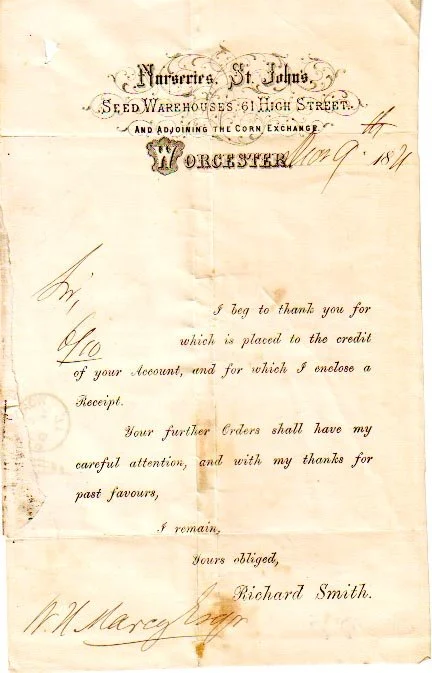 Nurseries, St. John's,
SEED WAREHOUSES, 61 HIGH STREET,
AND ADJOINING THE CORN EXCHANGE
WORCESTER, Nov 9th 18
Sir,
I beg to thank you for
6/10 which is placed to the credit
of your Account, and for which I enclose a
Receipt.
Your further Orders shall have my
careful attention, and with my thanks for
past favours,
I remain,
Yours obliged,
Richard Smith.
W. H. Marcy Esqr